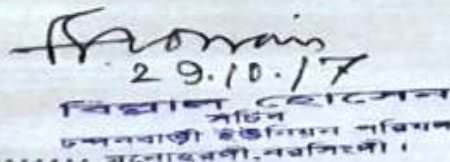 Hossain
29.10.17
বিল্লাল হোসেন
সচিব
চন্দনবাড়ী ইউনিয়ন পরিষদ
মনোহরদী, নরসিংদী।